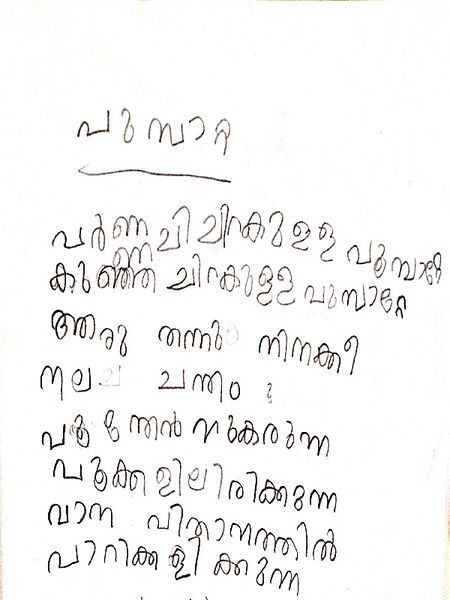 പുമ്പാറ്റ
വർണ്ണ ചിചിറകുള്ള പൂമ്പാറ്റേ
കുഞ്ഞി ചിറകുള്ള പുമ്പാറ്റേ
ആരു തന്നു നിനക്കീ
നല്ല ചന്തം ?
പൂന്തേൻ നുകരുന്ന
പൂക്കളിലിരിക്കുന്ന
വാന വിതാനത്തിൽ
പാറിക്കളിക്കുന്ന